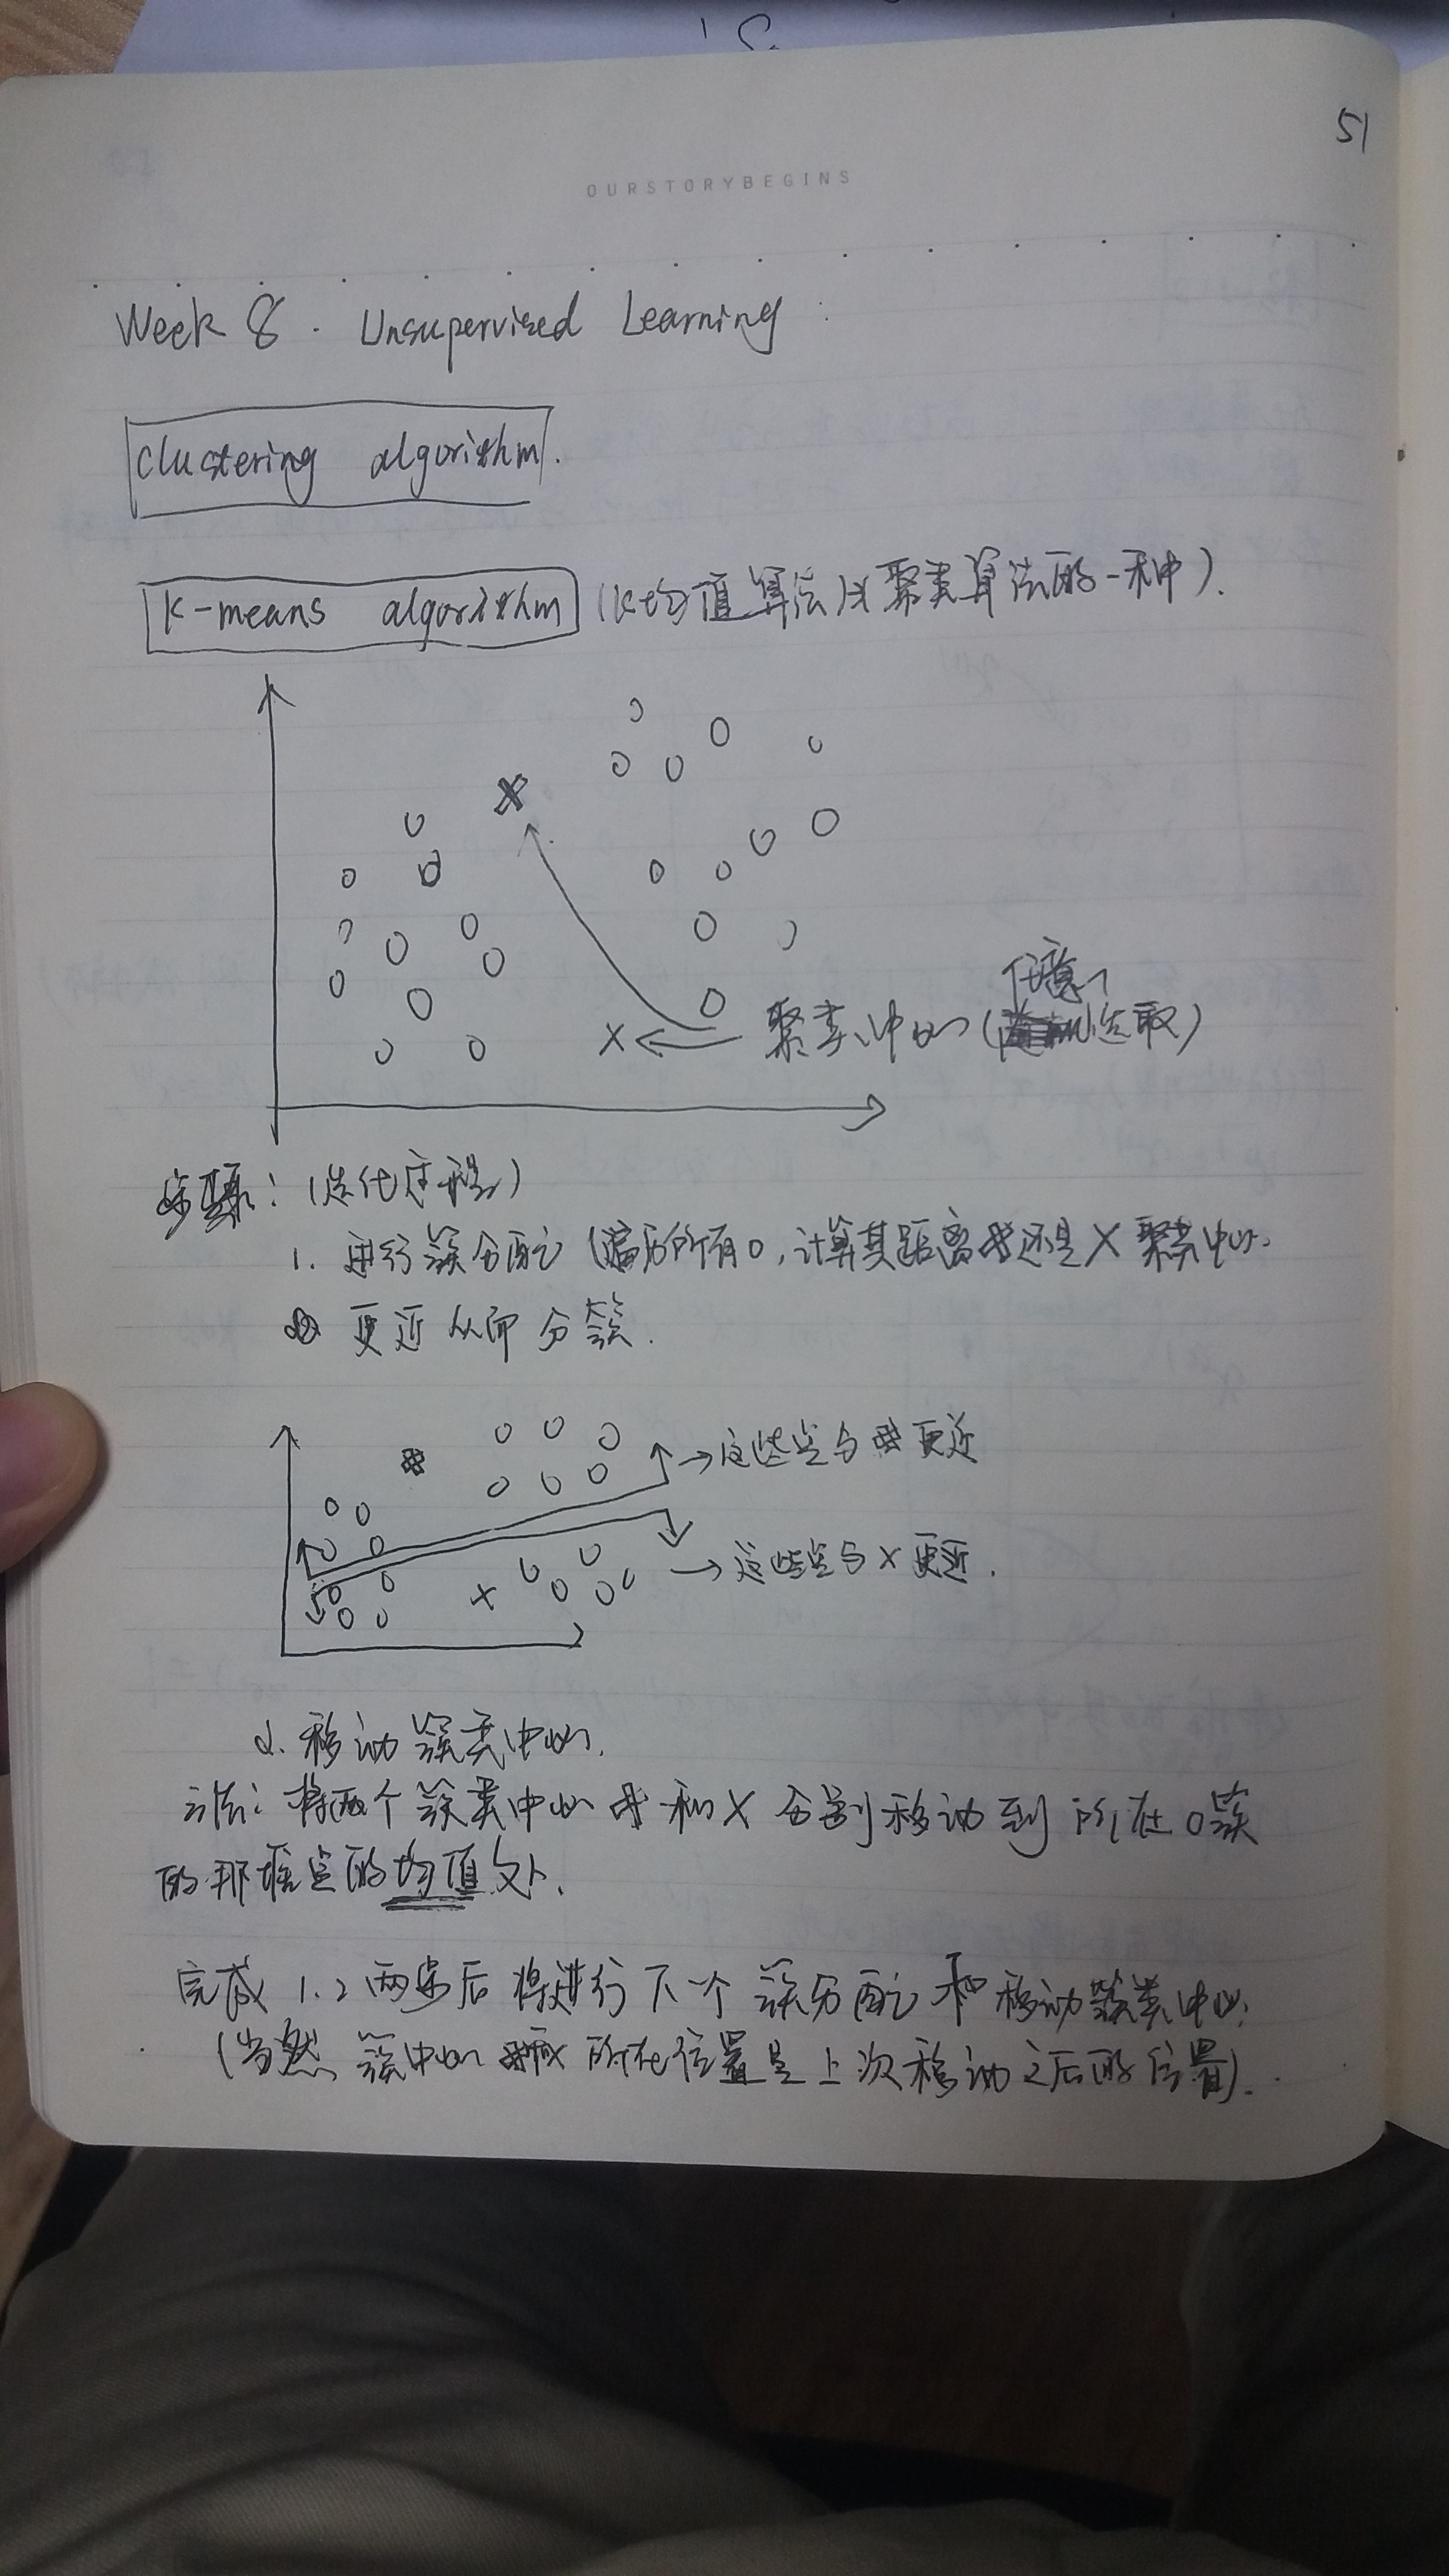 51
OURSTORYBEGINS
Week 8. Unsupervised Learning:
clustering algorithm.
K-means algorithm (K均值算法) (聚类算法的一种).
任意
聚类中心 (选取)
步骤: (迭代过程)
1. 进行簇分配 (遍历所有O, 计算其距离 还是 X 聚类中心
更近从而分簇.
→这些点与 更近
→这些点与X更近.
2. 移动簇类中心.
方法: 将两个簇类中心 和X分别移动到所在O簇
的那堆点的均值处.
完成 1.2 两步后将进行下个簇分配和移动簇类中心.
(当然, 簇中心 所在位置是上次移动之后的位置).